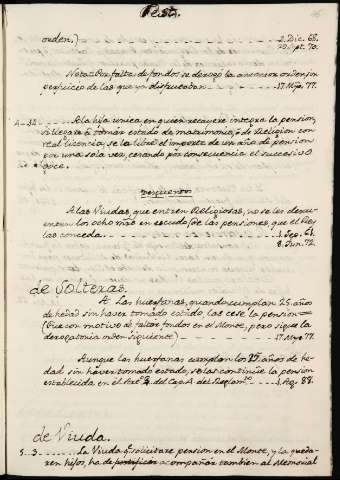 orden.) 2. Dic. 68.
70.
Nota. Por falta de fondos se derogó la anterior orden sin
perjuicio de las que ya disfrutaban 17. Mayo. 77.
A la hija unica, en quien recayere integra la pension,
si llegare á tomar estado de matrimonio, ó de Religion con
real licencia, se la libre el importe de un año de pension
por una sola vez, cesando por consecuencia el succesivo
goce.
A las Viudas, que entren Religiosas, no se les descu-
enten los ocho mrs en escudo, de las pensiones, que el Rey
las conceda. 1. Sep. 61.
8. Jun. 72.
de Solteras.
A Las huerfanas, quando cumplan 25 años
de hedad sin haver tomado estado, las cese la pension
(Fue con motivo de faltar fondos en el Monte, pero sigue la
derogatoria orden siguiente) 17. Mayo 77.
Aunque las huerfanas cumplan los 25 años de he-
dad sin haver tomado estado, se las continúe la pension
establecida en el del Cap. del Reglam.to 1. Ag. 88.
de Viuda.
5 3 La Viuda q. solicitare pension en el Monte, y la queda-
ren hijos, ha de acompañar tambien al Memorial